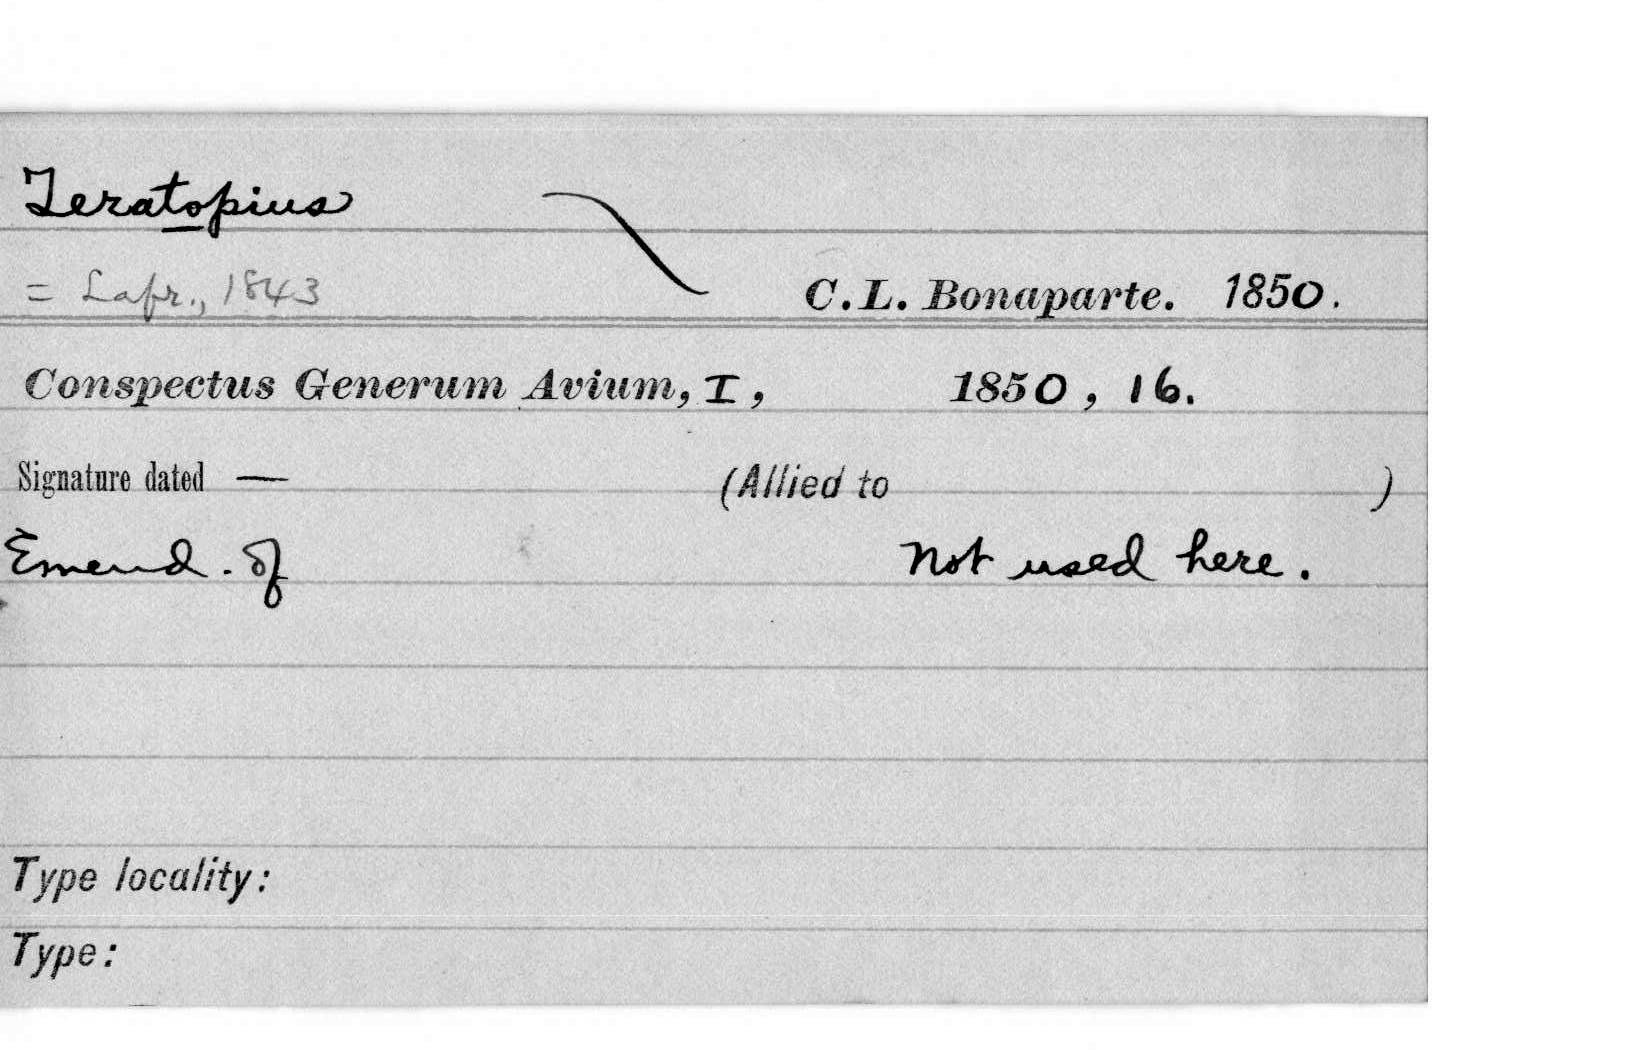 Teratopius
= Lafr., 1843
C.L. Bonaparte. 1850.
Conspectus Generum Avium, I, 1850, 16.
Signature dated — (Allied to )
Emend. of Not used here.
Type locality:
Type: